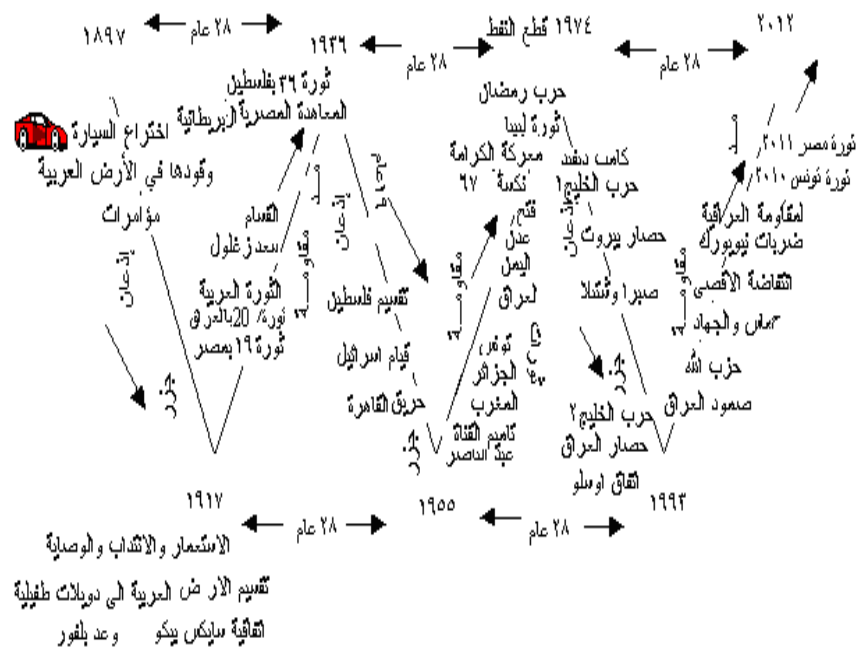 ١٨٩٧
٢٨ عام
١٩٣٦
٢٨ عام
١٩٧٤ قطع النفط
٢٨ عام
٢٠١٢
اختراع السيارة
وقودها في الأرض العربية
مؤامرات
إذعان
جزر
ثورة ٣٦ بفلسطين
المعاهدة المصرية البريطانية
القسام
سعد زغلول
الثورة العربية
ثورة 20 بالعراق
ثورة ١٩ بمصر
مقاومة
مد
إذعان
تقسيم فلسطين
قيام اسرائيل
حريق القاهرة
جزر
حرب رمضان
ثورة ليبيا
معركة الكرامة
نكسة ٦٧
فتح
عدن
اليمن
العراق
تونس
الجزائر
المغرب
تاميم القناة
عبد الناصر
مقاومة
ثورات
كامب ديفد
حرب الخليج١
إذعان
حصار بيروت
صبرا وشتيلا
جزر
حرب الخليج٢
حصار العراق
اتفاق اوسلو
مد
ثورة مصر ٢٠١١
ثورة تونس ٢٠١٠
لمقاومة العراقية
ضربات نيويورك
انتفاضة الأقصى
حماس والجهاد
حزب الله
صمود العراق
مقاومة
١٩١٧
٢٨ عام
١٩٥٥
٢٨ عام
١٩٩٣
الاستعمار والانتداب والوصاية
تقسيم الارض العربية الى دويلات طفيلية
اتفاقية سايكس بيكو وعد بلفور